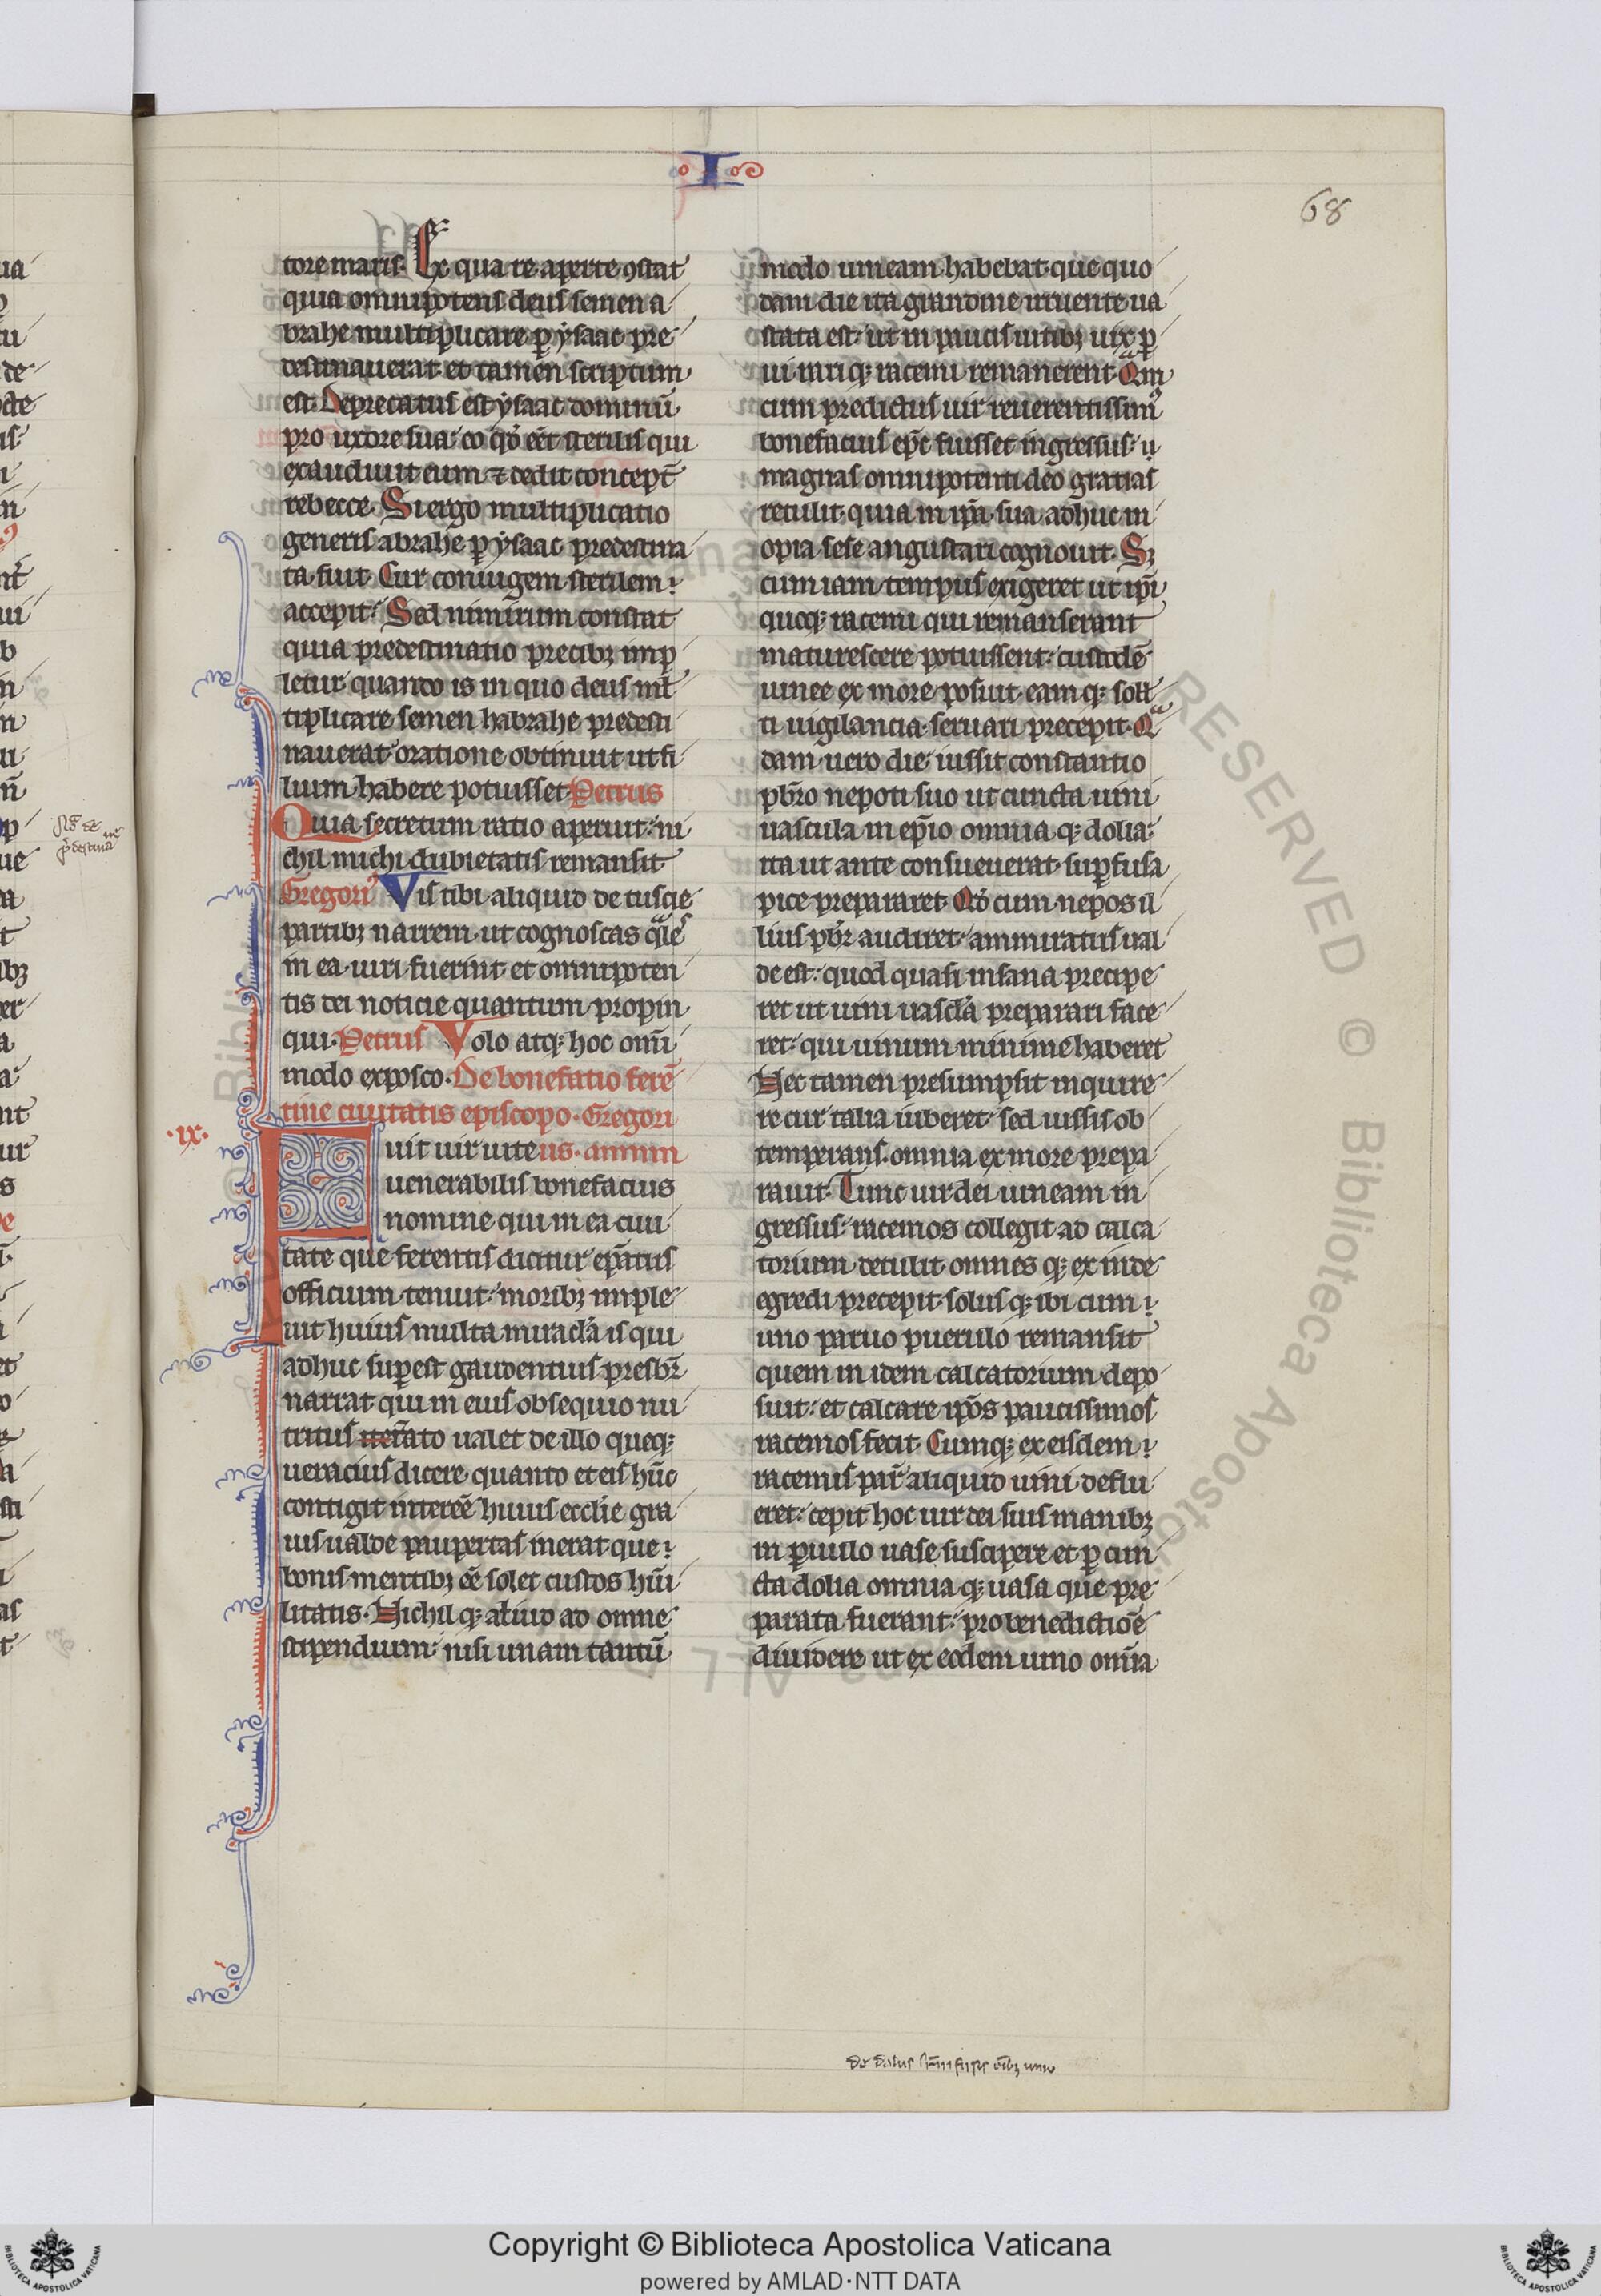 I
68
tore maris. Ex qua re aperte ꝯstat
quia omnipotens deus semen a
brahe multiplicare ꝑ ysaac pre
destinauerat et tamen scriptum
est. Deprecatus est ysaac dominū
pro uxore sua: eo qđ eēt sterilis qui
exaudiuit eum ⁊ dedit concept̄
rebecce. Si ergo multiplicatio
generis abrahe ꝑ ysaac predestina
ta fuit Cur coniugem sterilem
accepit. Sed nimirum constat
quia predestinatio precibꝫ imp
letur quando is in quo deus ml̄
tiplicare semen habrahe predesti
nauerat oratione obtinuit ut fi
lium habere potuisset Petrus
Quia secretum ratio aperuit: ni
chil michi dubietatis remansit
Gregori⁹ Vis tibi aliquid de tuscie
partibꝫ narrem. ut cognoscas q̄les
in ea uiri fuerint et omnipoten
tis dei noticie quantum propin
qui. Petrus Volo atqꝫ hoc omī
modo exposco. De bonefatio ferē
tine ciuitatis episcopo. Gregori
.ix.
Fuit uir uite us. annm
uenerabilis bonefacius
nomine qui in ea ciui
tate que ferentis dicitur ep̄atus
officium tenuit: moribꝫ imple
uit huius multa miracl̄a is qui
adhuc suꝑest gaudentius presbr̄
narrat qui in eius obsequio nu
tritus iterato ualet de illo queqꝫ
ueracius dicere quanto et eis hūc
contigit intereē huius ecclīe gra
uis ualde paupertas inerat que
bonis mentibꝫ eē solet custos hūi
litatis. Nichil qꝫ aliud ad omne
stipendium: nisi unam tantū
modo uineam habebat que quo
dam die ita grandine irruente ua
stata est: ut in paucis uitibꝫ uix ꝑ
ui rari qꝫ racemi remanerent. Qᵃm
cum predictus uir reuerentissim⁹
bonefacius ep̄c fuisset ingressus:
magnas omnipotenti deo gratias
retulit quia in ip̄a sua adhuc in
opia sese angustari cognouit. Sꝫ
cum iam tempus exigeret ut ip̄i
quoqꝫ racemi qui remanserant
maturescere potuissent: custodē
uinee ex more posuit. eam qꝫ soll̄
ti uigilancia seruari precepit. Qᵃ
dam uero die iussit constantio
pb̄ro nepoti suo ut cuncta uini
uascula in ep̄io omnia qꝫ dolia:
ita ut ante consueuerat suꝑfusa
pice prepararet. Qđ cum nepos il
lius pb̄r audiret: ammiratus ual
de est: quod quasi insana precipe
ret ut uini uascl̄a preparari face
ret: qui uinum minime haberet
Nec tamen presumpsit inquire
re cur talia iuberet: sed iussis ob
temperans. omnia ex more prepa
rauit. Tunc uir dei uineam in
gressus: racemos collegit ad calca
torium detulit omnes qꝫ exinde
egredi precepit. solus qꝫ ibi cum
uno paruo puerulo remansit
quem in idem calcatorium depo
suit: et calcare ip̄os paucissimos
racemos fecit. Cumqꝫ ex eisdem
racemis par̄ aliquid uini deflu
eret: cepit hoc uir dei suis manibꝫ
in ꝑuulo uase suscipere et ꝑ cun
cta dolia omnia qꝫ uasa que pre
parata fuerant: pro benedictiōe
diuidere ut ex eodem uino om̄ia
Copyright © Biblioteca Apostolica Vaticana
powered by AMLAD·NTT DATA